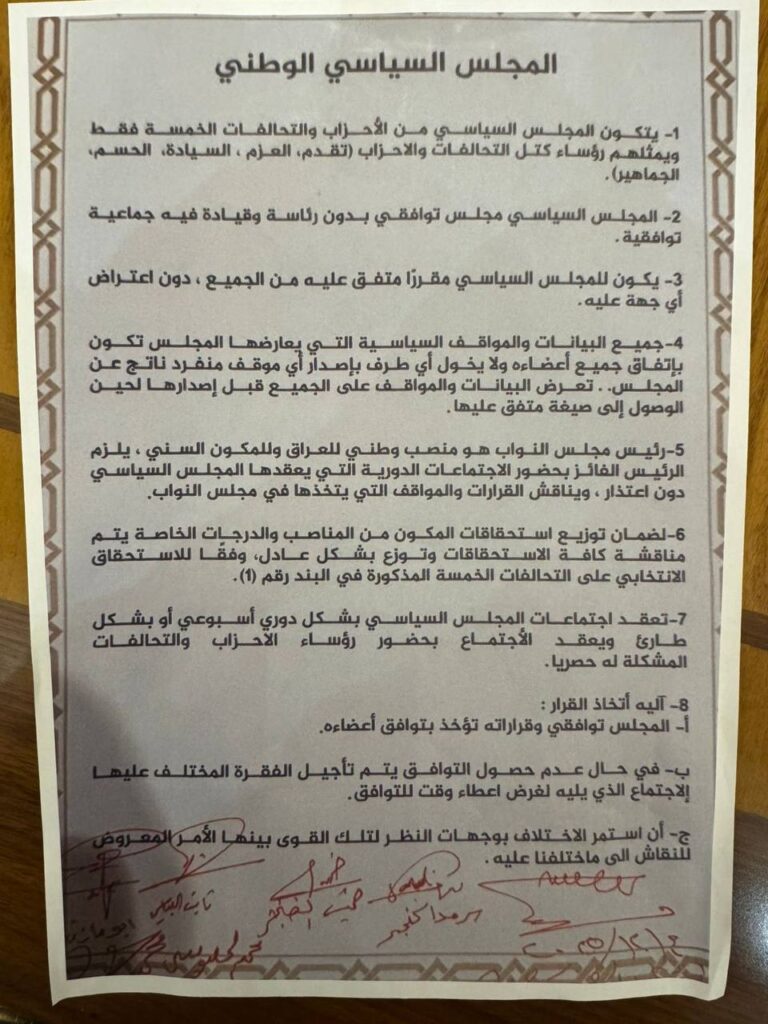 المجلس السياسي الوطني
1- يتكون المجلس السياسي من الأحزاب والتحالفات الخمسة فقط
ويمثلهم رؤساء كتل التحالفات والاحزاب (تقدم، العزم ، السيادة، الحسم،
الجماهير).
2- المجلس السياسي مجلس توافقي بدون رئاسة وقيادة فيه جماعية
توافقية .
3- يكون للمجلس السياسي مقررًا متفق عليه من الجميع ، دون اعتراض
أي جهة عليه.
4-جميع البيانات والمواقف السياسية التي يعارضها المجلس تكون
بإتفاق جميع أعضاءه ولا يخول أي طرف بإصدار أي موقف منفرد ناتج عن
المجلس. . تعرض البيانات والمواقف على الجميع قبل إصدارها لحين
الوصول إلى صيغة متفق عليها.
5-رئيس مجلس النواب هو منصب وطني للعراق وللمكون السني ، يلزم
الرئيس الفائز بحضور الاجتماعات الدورية التي يعقدها المجلس السياسي
دون اعتذار ، ويناقش القرارات والمواقف التي يتخذها في مجلس النواب.
6-لضمان توزيع استحقاقات المكون من المناصب والدرجات الخاصة يتم
مناقشة كافة الاستحقاقات وتوزع بشكل عادل، وفقًا للاستحقاق
الانتخابي على التحالفات الخمسة المذكورة في البند رقم (1).
7-تعقد اجتماعات المجلس السياسي بشكل دوري أسبوعي أو بشكل
طارئ ويعقد الأجتماع بحضور رؤساء الاحزاب والتحالفات
المشكلة له حصريا.
8- آليه أتخاذ القرار :
أ- المجلس توافقي وقراراته تؤخذ بتوافق أعضاءه.
ب- في حال عدم حصول التوافق يتم تأجيل الفقرة المختلف عليها
إلاجتماع الذي يليه لغرض اعطاء وقت للتوافق.
ج- أن استمر الاختلاف بوجهات النظر لتلك القوى بينها الأمر المعروض
للنقاش الى ماختلفنا عليه .
خميس الخنجر
سرمد الخنجر